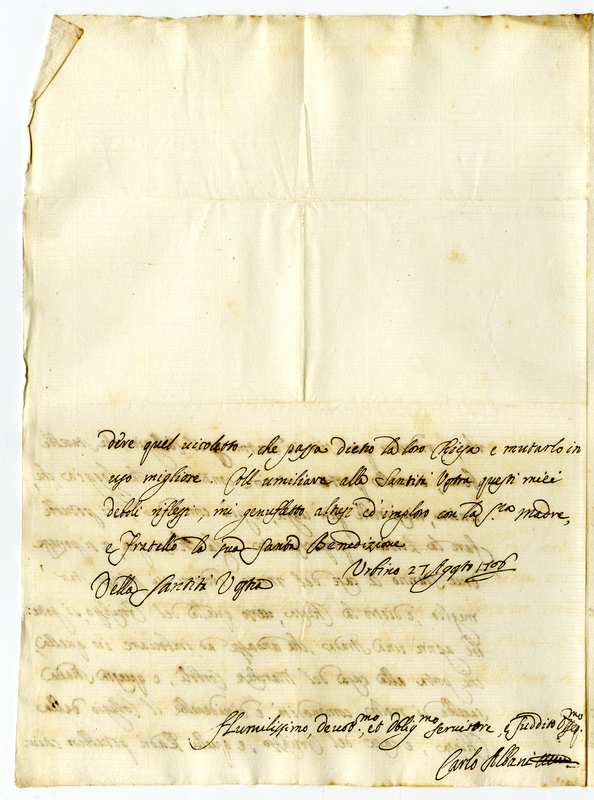 dére quel uicoletto, che passa dietro la loro Chiesa e mutarlo in
uso migliore. All umiliare alla Santità Vostra questi miei
deboli riflessi, mi genufletto altresì ed imploro con la Sra madre,
e Fratello la sua Santa Benedizione
Urbino 27 Agosto 1706
Della Santità Vostra
Humilissimo, deuotmo, et Obligmo seruitore, e suddito
Carlo Albani